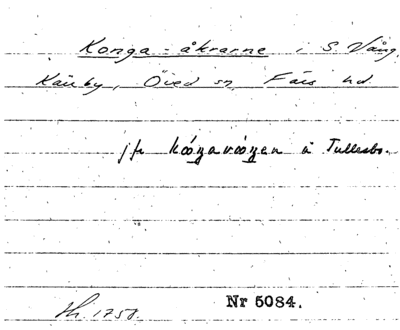 Konga-åkrarne i S. Vång,
Kärby, Öved sn Färs hd
jfr kóŋavóŋen å Tullesbo.
Hh. 1758. Nr 5084.